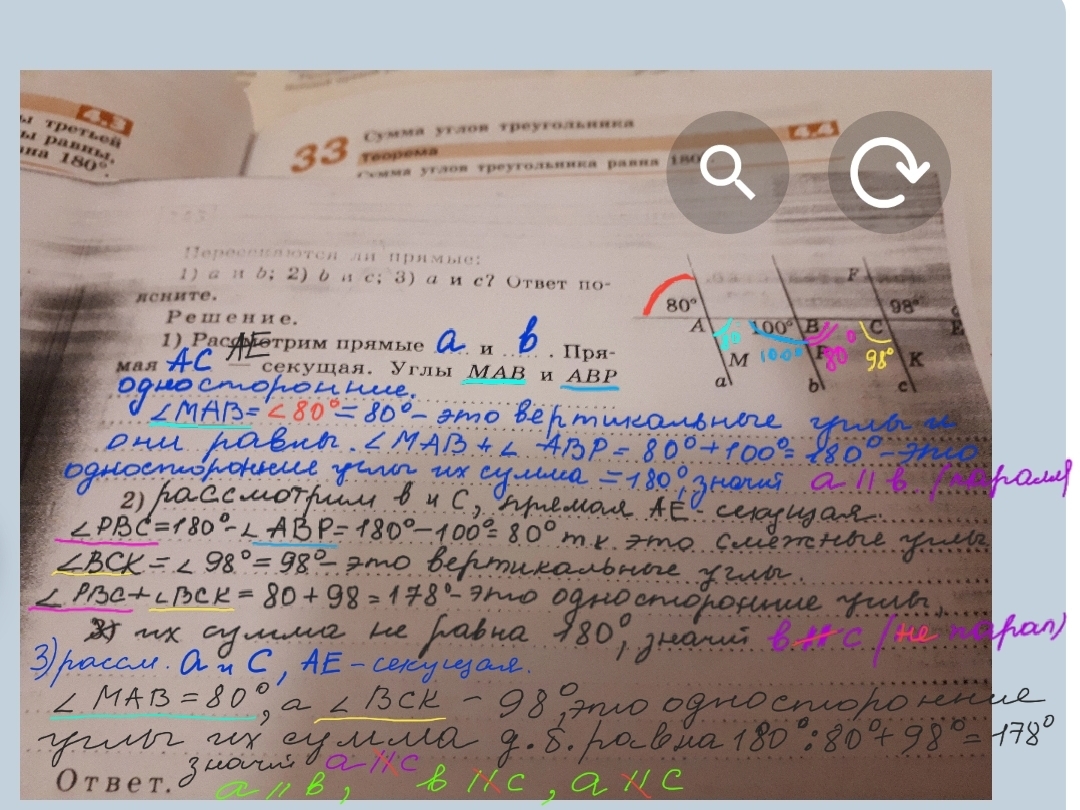 4.3
ы третьей
ы равны,
на 180°.
33 Сумма углов треугольника
4.4
Теорема
Сумма углов треугольника равна 180
Пересекаются ли прямые:
1) a и b; 2) b и c; 3) a и c? Ответ по-
ясните.
Решение.
1) Рассмотрим прямые а и в. Пря-
мая АС АЕ — секущая. Углы МАВ и АВР
односторонние.
∠МАВ = ∠80° = 80° - это вертикальные углы и
они равны. ∠МАВ + ∠АВР = 80° + 100° = 180° - это
односторонние углы их сумма = 180°, значит а || в. (паралл)
2) рассмотрим в и С, прямая АЕ - секущая.
∠РВС = 180° - ∠АВР = 180° - 100° = 80° т к это смежные углы
∠ВСК = ∠98° = 98° - это вертикальные углы.
∠РВС + ∠ВСК = 80 + 98 = 178° - это односторонние углы,
3) их сумма не равна 180°, значит в ∦ с (не парал)
3) рассм. а и С, АЕ - секущая.
∠МАВ = 80°, а ∠ВСК - 98°, это односторонние
углы их сумма д.б. равна 180°: 80° + 98° = 178°
значит а ∦ с
Ответ. а || в, в ∦ с, а ∦ с
80°
A
M
a
100°
100°
B
P
80°
b
F
98°
C
98°
K
c
E